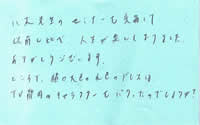 先生のセミナーを受講して
以前と比べ、人生が楽しくなりました。
ありがとうございます。
ところで、緑の大色のドレスは、
TV 用のキャラクターもパクったのでしょうか?